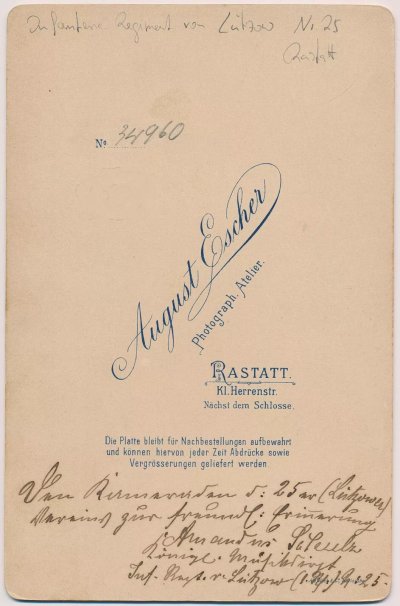 Infanterie Regiment von Lützow Nr. 25
Rastatt
No. 34960
August Escher
Photograph. Atelier.
RASTATT.
Kl. Herrenstr.
Nächst dem Schlosse.
Die Platte bleibt für Nachbestellungen aufbewahrt
und können hiervon jeder Zeit Abdrücke sowie
Vergrösserungen geliefert werden.
Den Kameraden d. 25er (Lützower)
Vereins zur freundl. Erinnerung
Amandus
Königl. Musikdirgt
Inf. Regt. v. Lützow (1. Rh.) N. 25.